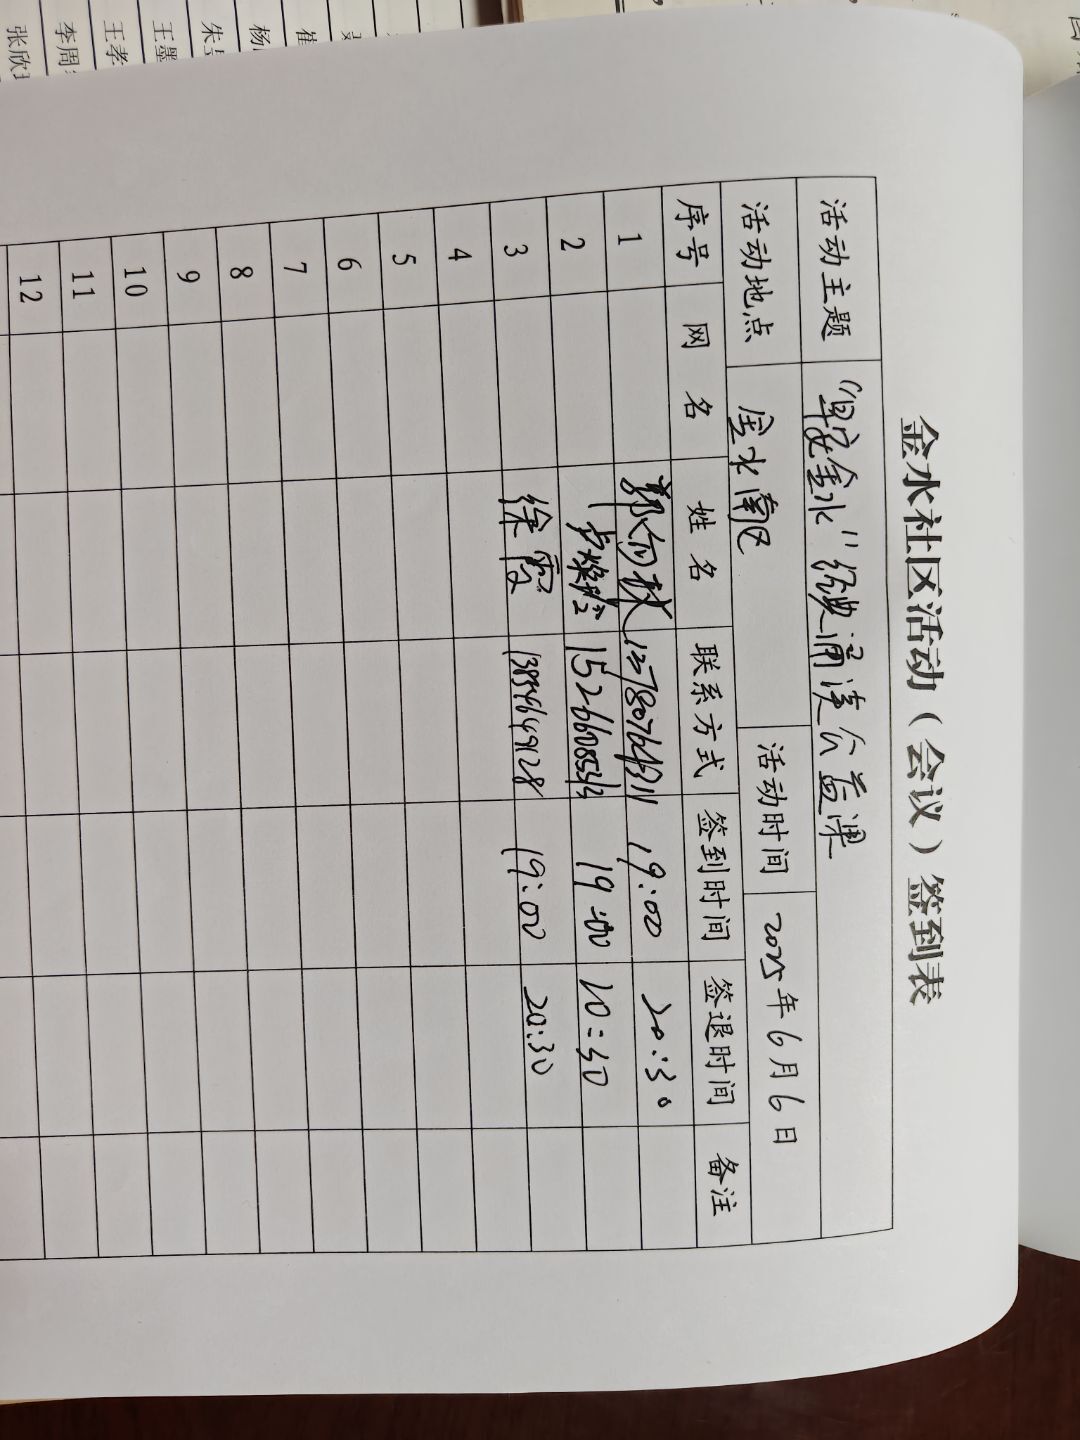 金水社区活动（会议）签到表
活动主题 “早安金水” 经典诵读公益课
活动地点 金水南区 活动时间 2025年6月6日
序号 网 名 姓 名 联系方式 签到时间 签退时间 备注
1 19:00 20:30
2 19:00 20:30
3 徐霞 19:00 20:30
4
5
6
7
8
9
10
11
12
张欣
李周
王孝
王墨
朱
杨
崔